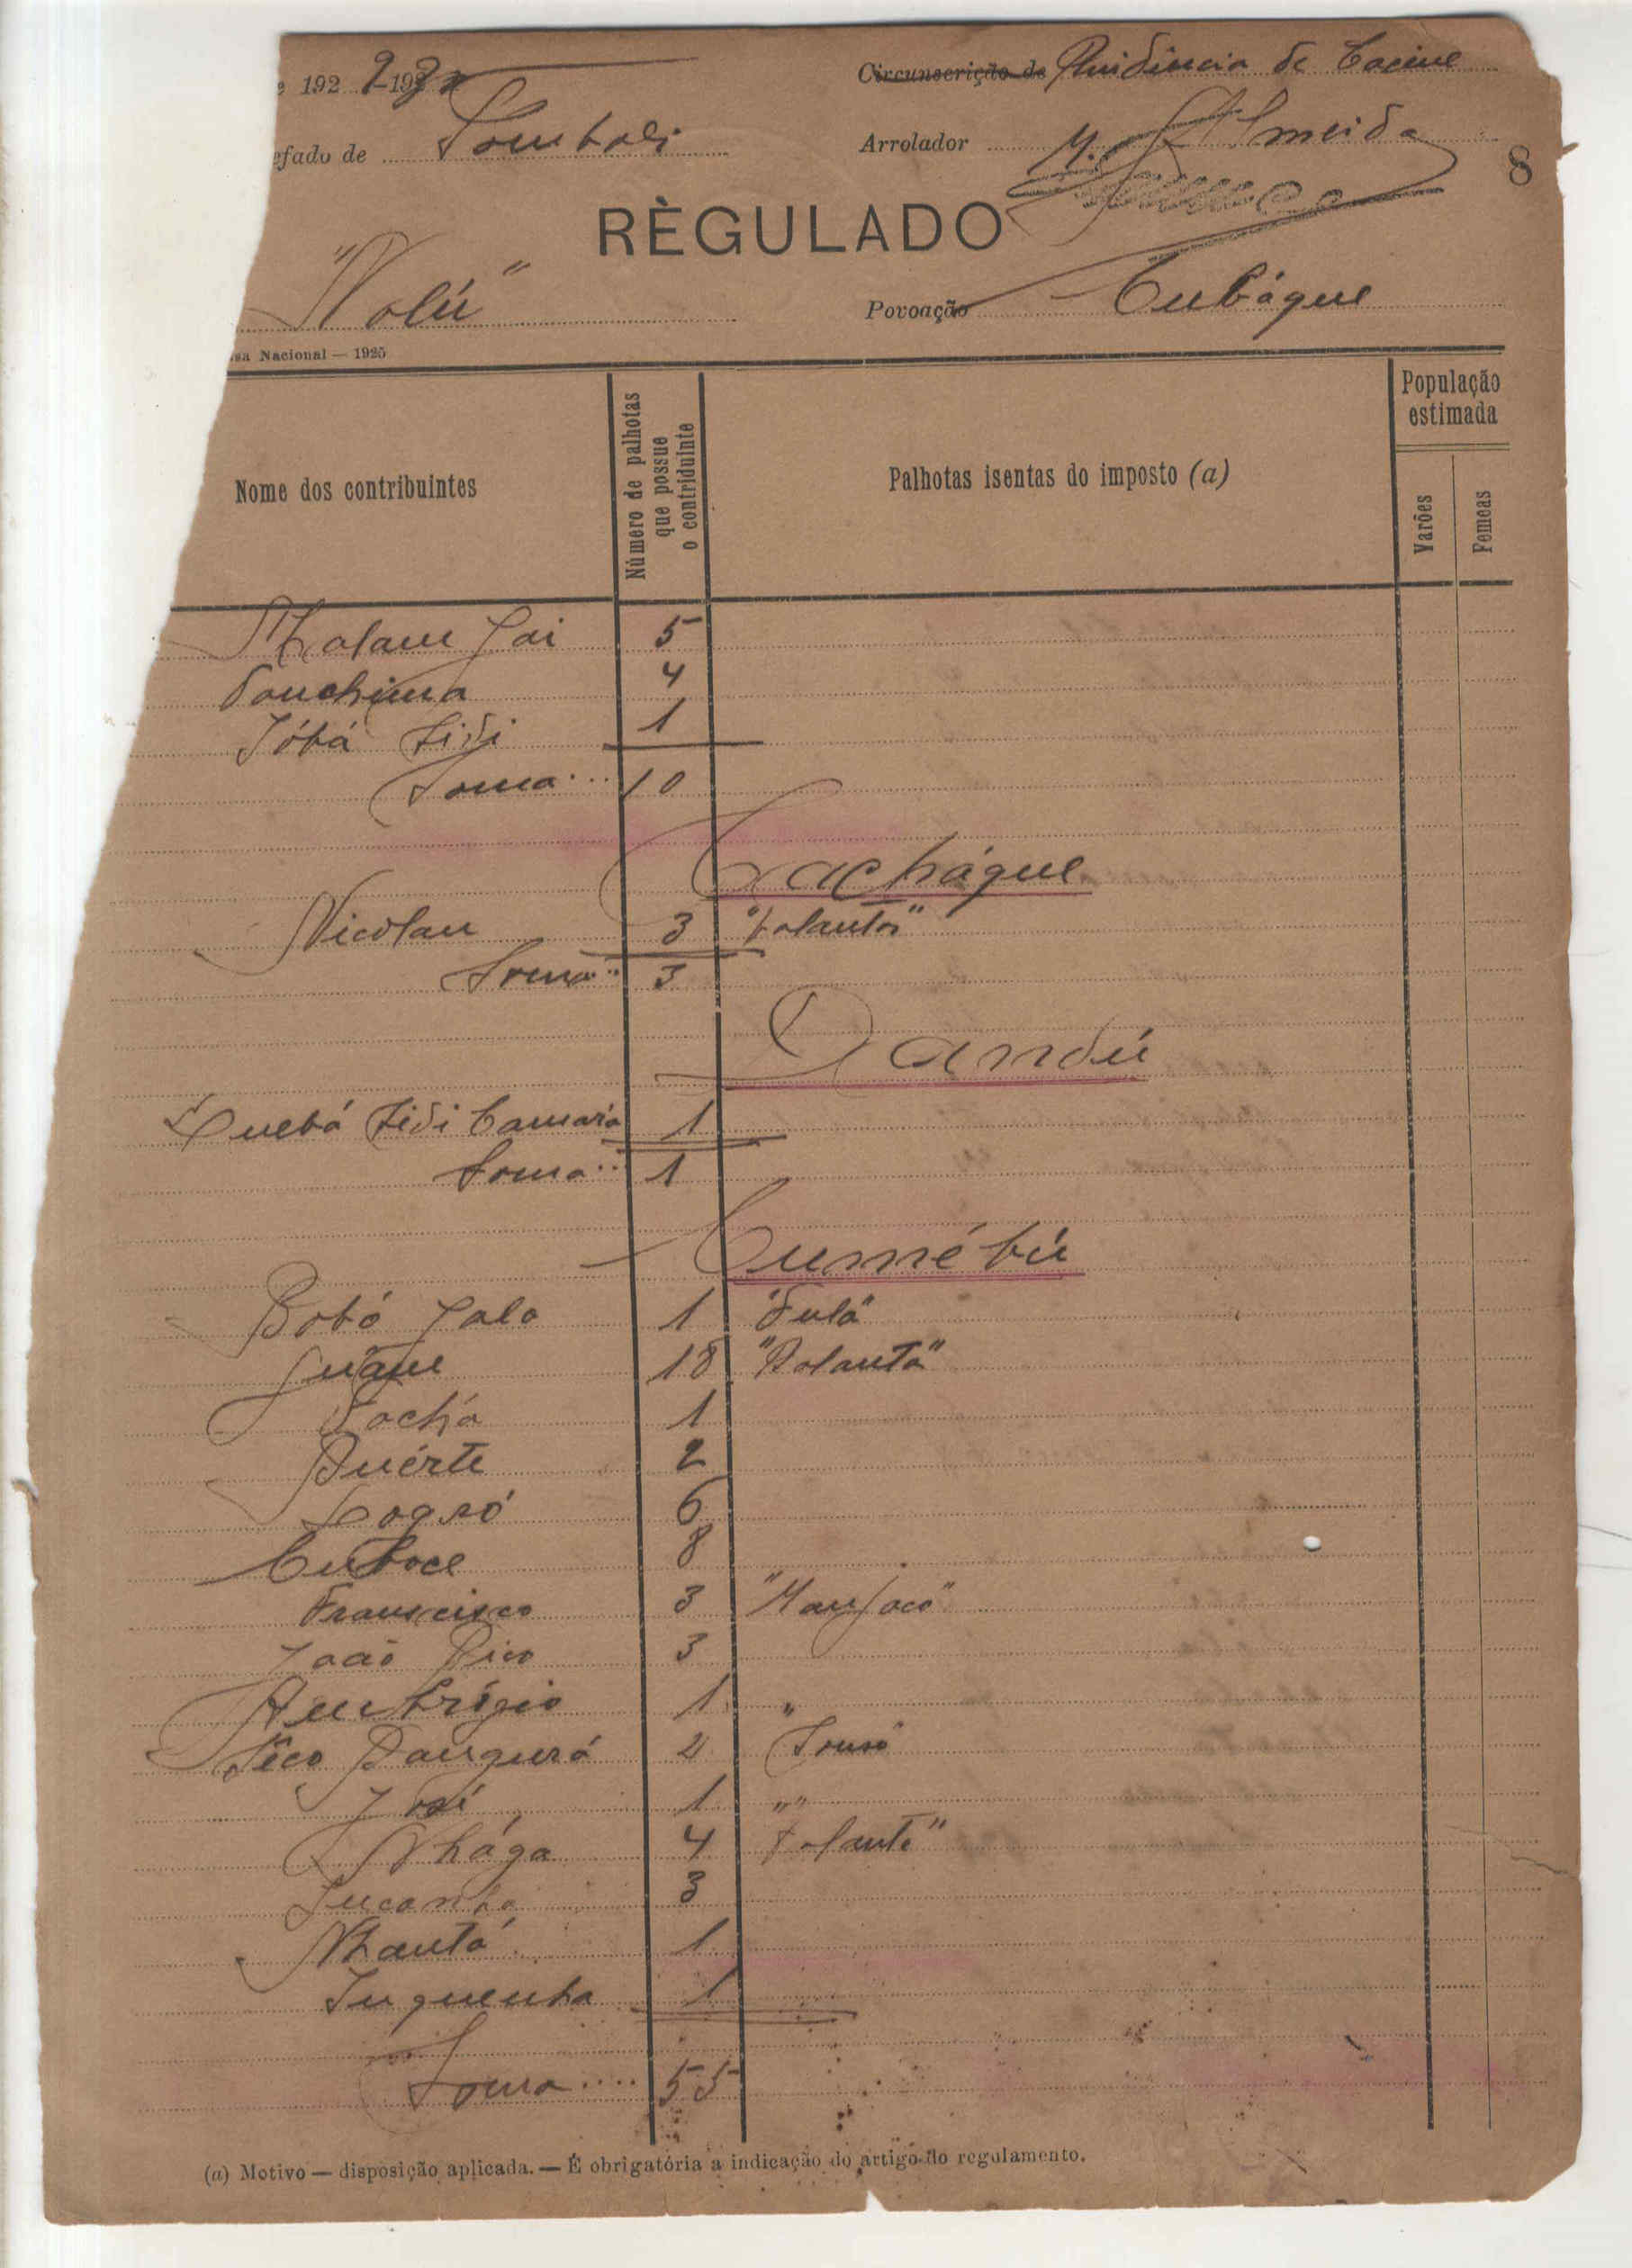 192 9-193
Circunscrição de Residencia de Cacine
efado de Tombali
Arrolador M. Almeida
8
RÈGULADO
"Nalú"
Povoação Cubáque
sa Nacional — 1925
Nome dos contribuintes
Número de palhotas que possue o contriduinte
Palhotas isentas do imposto (a)
População estimada
Varões
Femeas
5
4
Jóbá Sidi 1
Soma 10
Cacháque
Nicolau 3 "balanta"
Soma 3
Dandú
Quebá Sidi Camará 1
Soma 1
Cumébú
Bobó Jalo 1 "Fula"
18 "Balanta"
1
Duérte 2
6
8
Francisco 3 "Manjaco"
João Pico 3
Ambrósio 1 "
2
José 1 " "
Nhága 4 balanta"
3
Nhantá 1
Inquenha 1
Soma .... 55
(a) Motivo — disposição aplicada. — É obrigatória a indicação do artigo do regulamento.